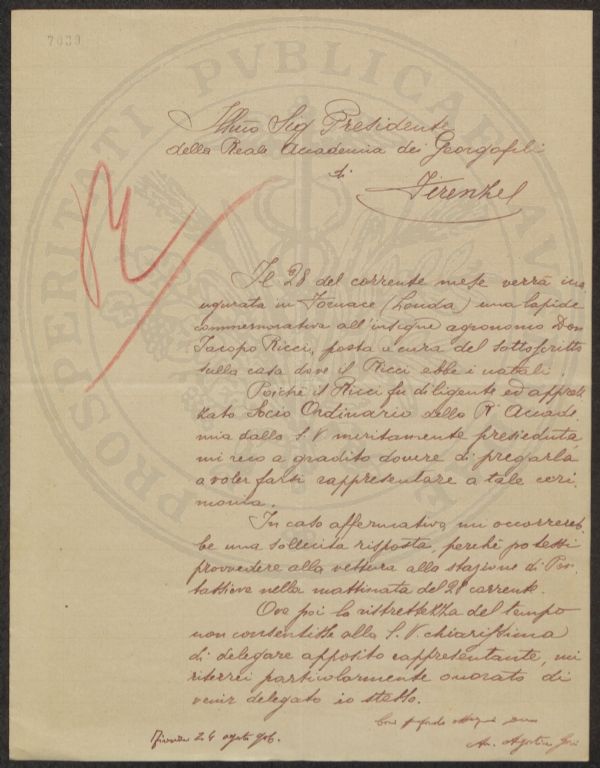 7639
Illmo Sig Presidente
della Reale Accademia dei Georgofili
di
Firenze
Il 28 del corrente mese verrà inau
gurata in Fornace (Londa) una lapide
commemorativa all'insigne agronomo Don
Jacopo Ricci, posta a cura del sottoscritto
sulla casa dove il Ricci ebbe i natali.
Poichè il Ricci fu diligente ed apprez
zato Socio Ordinario della R. Accade
mia dalla S. V. meritamente presieduta
mi reco a gradito dovere di pregarla
a voler farsi rappresentare a tale ceri
monia.
In caso affermativo, mi occorrereb
be una sollecita risposta, perchè potessi
provvedere alla vettura alla stazione di Pon
tassieve nella mattinata del 28 corrente.
Ove poi la ristrettezza del tempo
non consentisse alla S. V. chiarissima
di delegare apposito rappresentante, mi
riterrei particolarmente onorato di
venir delegato io stesso.
Con
24 agosto 906.
Agostino
PROSPERITATI PVBLICAE AVGENDAE